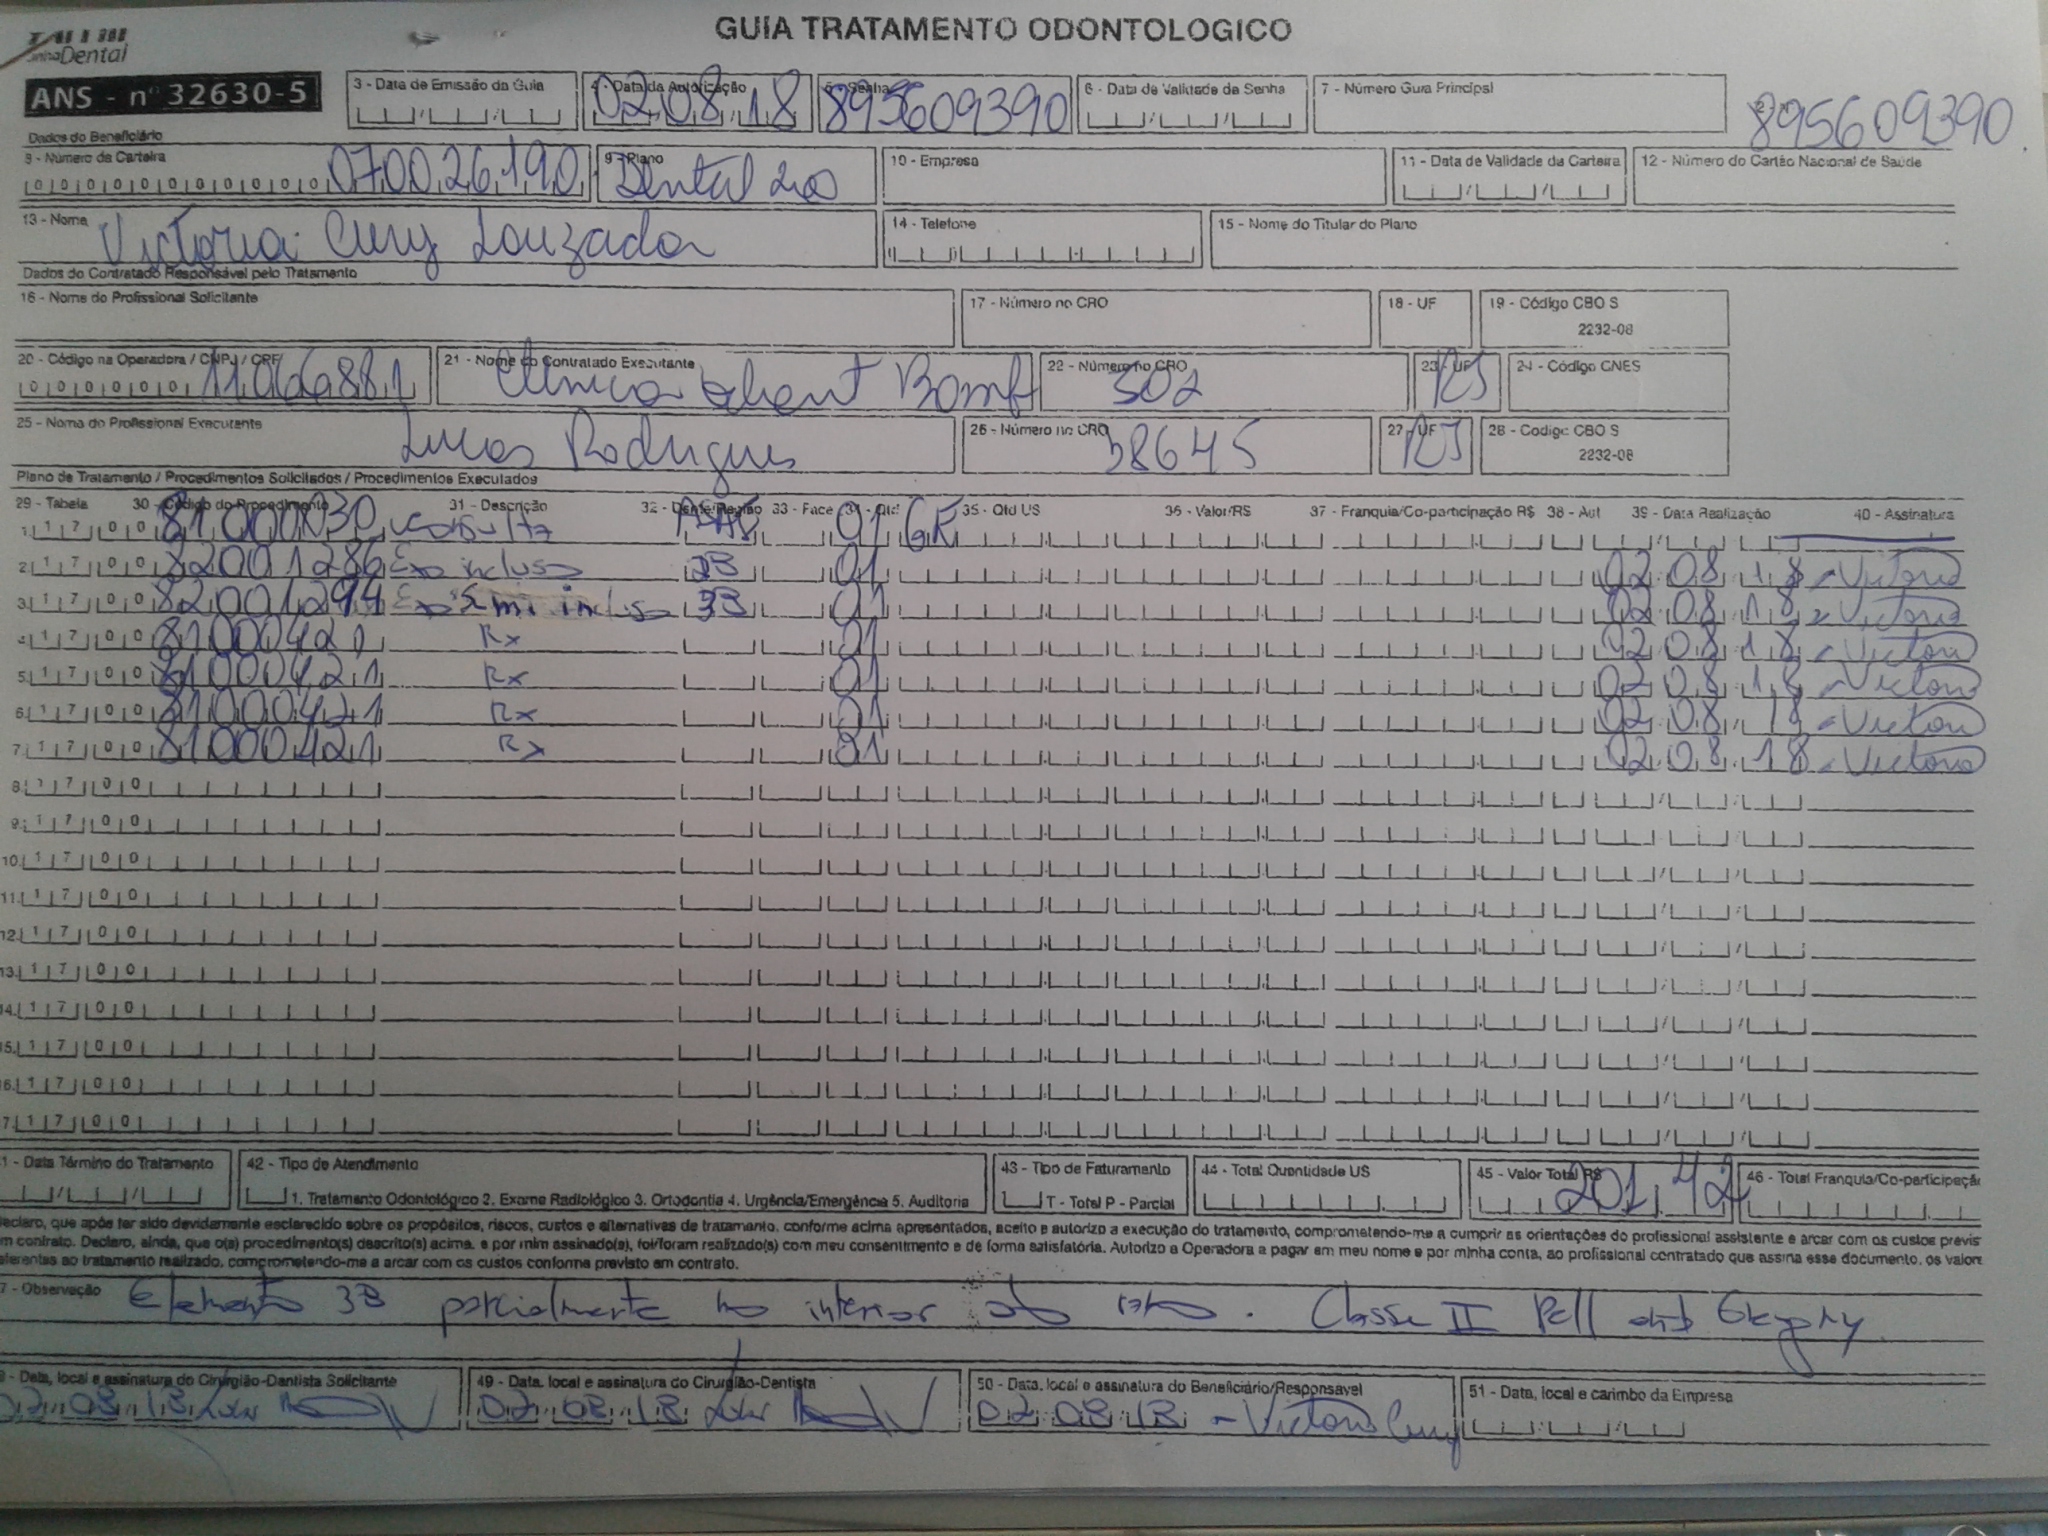 Dental
GUIA TRATAMENTO ODONTOLOGICO
ANS - nº 32630-5
3 - Data de Emissão da Guia
4 - Data da Autorização
02 08 18
5 - Senha
895609390
6 - Data de Validade da Senha
7 - Número Guia Principal
895609390
Dados do Beneficiário
8 - Número da Carteira
070026190
9 - Plano
10 - Empresa
11 - Data de Validade da Carteira
12 - Número do Cartão Nacional de Saúde
13 - Nome
14 - Telefone
15 - Nome do Titular do Plano
Dados do Contratado Responsável pelo Tratamento
16 - Nome do Profissional Solicitante
17 - Número no CRO
18 - UF
19 - Código CBO S
2232-08
20 - Código na Operadora / CNPJ / CPF
21 - Nome do Contratado Executante
22 - Número no CRO
23 - UF
RJ
24 - Código CNES
25 - Nome do Profissional Executante
Lucas Rodrigues
26 - Número no CRO
38645
27 - UF
RJ
28 - Código CBO S
2232-08
Plano de Tratamento / Procedimentos Solicitados / Procedimentos Executados
29 - Tabela 30 - Código do Procedimento 31 - Descrição 32 - Dente/Região 33 - Face 34 - Qtd 35 - Qtd US 36 - Valor/R$ 37 - Franquia/Co-participação R$ 38 - Aut 39 - Data Realização 40 - Assinatura
1 - 81000030 Consulta 01
2 - 82001286 Exo incluso 01 02 08 18
3 - 82001294 Exo semi incluso 38 01 02 08 18
4 - 81000421 Rx 01 02 08 18
5 - 81000421 Rx 01 02 08 18
6 - 81000421 Rx 01 02 08 18
7 - 81000421 Rx 01 02 08 18
8
9
10
11
12
13
14
15
16
17
41 - Data Término do Tratamento
42 - Tipo de Atendimento
1. Tratamento Odontológico 2. Exame Radiológico 3. Ortodontia 4. Urgência/Emergência 5. Auditoria
43 - Tipo de Faturamento
T - Total P - Parcial
44 - Total Quantidade US
45 - Valor Total R$
201,42
46 - Total Franquia/Co-participação
declaro, que após ter sido devidamente esclarecido sobre os propósitos, riscos, custos e alternativas de tratamento, conforme acima apresentados, aceito e autorizo a execução do tratamento, comprometendo-me a cumprir as orientações do profissional assistente e arcar com os custos previs
em contrato. Declaro, ainda, que o(s) procedimento(s) descrito(s) acima, e por mim assinado(s), foi/foram realizado(s) com meu consentimento e de forma satisfatória. Autorizo a Operadora a pagar em meu nome e por minha conta, ao profissional contratado que assina esse documento, os valores
referentes ao tratamento realizado, comprometendo-me a arcar com os custos conforme previsto em contrato.
7 - Observação
Elemento 38 parcialmente no interior do ramo. Classe II Pell and Gregory
- Data, local e assinatura do Cirurgião-Dentista Solicitante
02 08 18
49 - Data, local e assinatura do Cirurgião-Dentista
02 08 18
50 - Data, local e assinatura do Beneficiário/Responsável
02 08 18
51 - Data, local e carimbo da Empresa